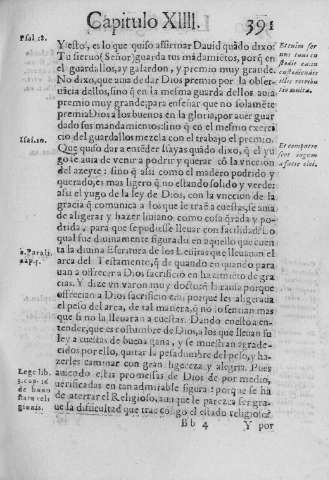 Capitulo XIIII. 391
Psal.18.
Y esto, es lo que quiso affirmar Dauid quãdo dixo:
Tu sieruo (Señor) guarda tus mãdamiẽtos, porq̃ en
el guardallos, ay galardon, y premio muy grande.
No dixo, que auia de dar Dios premio por la obser
uãcia dellos, sino q̃ en la mesma guarda dellos auia
premio muy grande; para enseñar que no solamẽte
premia Dios a los buenos en la gloria, por auer guar
dado sus mandamientos: sino q̃ en el mesmo exerci
cio del guardallos mezcla con el trabajo el premio.
Etenim ser
uus tuus cu
stodit ea: in
custodiendis
illis retribu
tio multa.
Isai.10.
Que quiso dar a entẽder Isayas quãdo dixo, q̃ el yu
go se auia de venir a podrir y quebrar cõ la vnccion
del azeyte: sino q̃ assi como el madero podrido y
quebrado, es mas ligero q̃ no estando solido y verde:
assi el yugo de la ley de Dios, con la vnccion de la
gracia q̃ comunica a los que le traẽ a cuestas, se auia
de aligerar y hazer liuiano como cosa q̃brada y po-
drida, para que se pudiesse lleuar con facilidad. Lo
qual fue diuinamente figurado en aquello que cuen
ta la diuina Escritura de los Leuitas que lleuauan el
arca del Testamento; q̃ de quando en quando para
uan a offrecer a Dios sacrificio en hazimiẽto de gra
cias. Y dize vn varon muy docto
Et computre
scet iugum
a facie olei.
2.Parali.
offrecian a Dios sacrificio era, porque les aligeraua
el peso del arca, de tal manera, q̃ no lo sentian mas
que si no la lleuaran a cuestas. Dando con esto a en-
tender, que es costumbre de Dios, a los que lleuan su
ley a cuestas de buena gana, y se muestran agrade-
cidos por ello, quitar la pesadumbre del peso, y ha-
zerles caminar con gran ligereza y alegria. Pues
auiendo estas promessas de Dios de por medio,
uerificadas en tan admirable figura: porque se ha
de aterrar el Religioso, aunque le parezca ser gra-
ue la dificultad que trae consigo el estado religioso?
Lege lib.
Bb 4 Y por